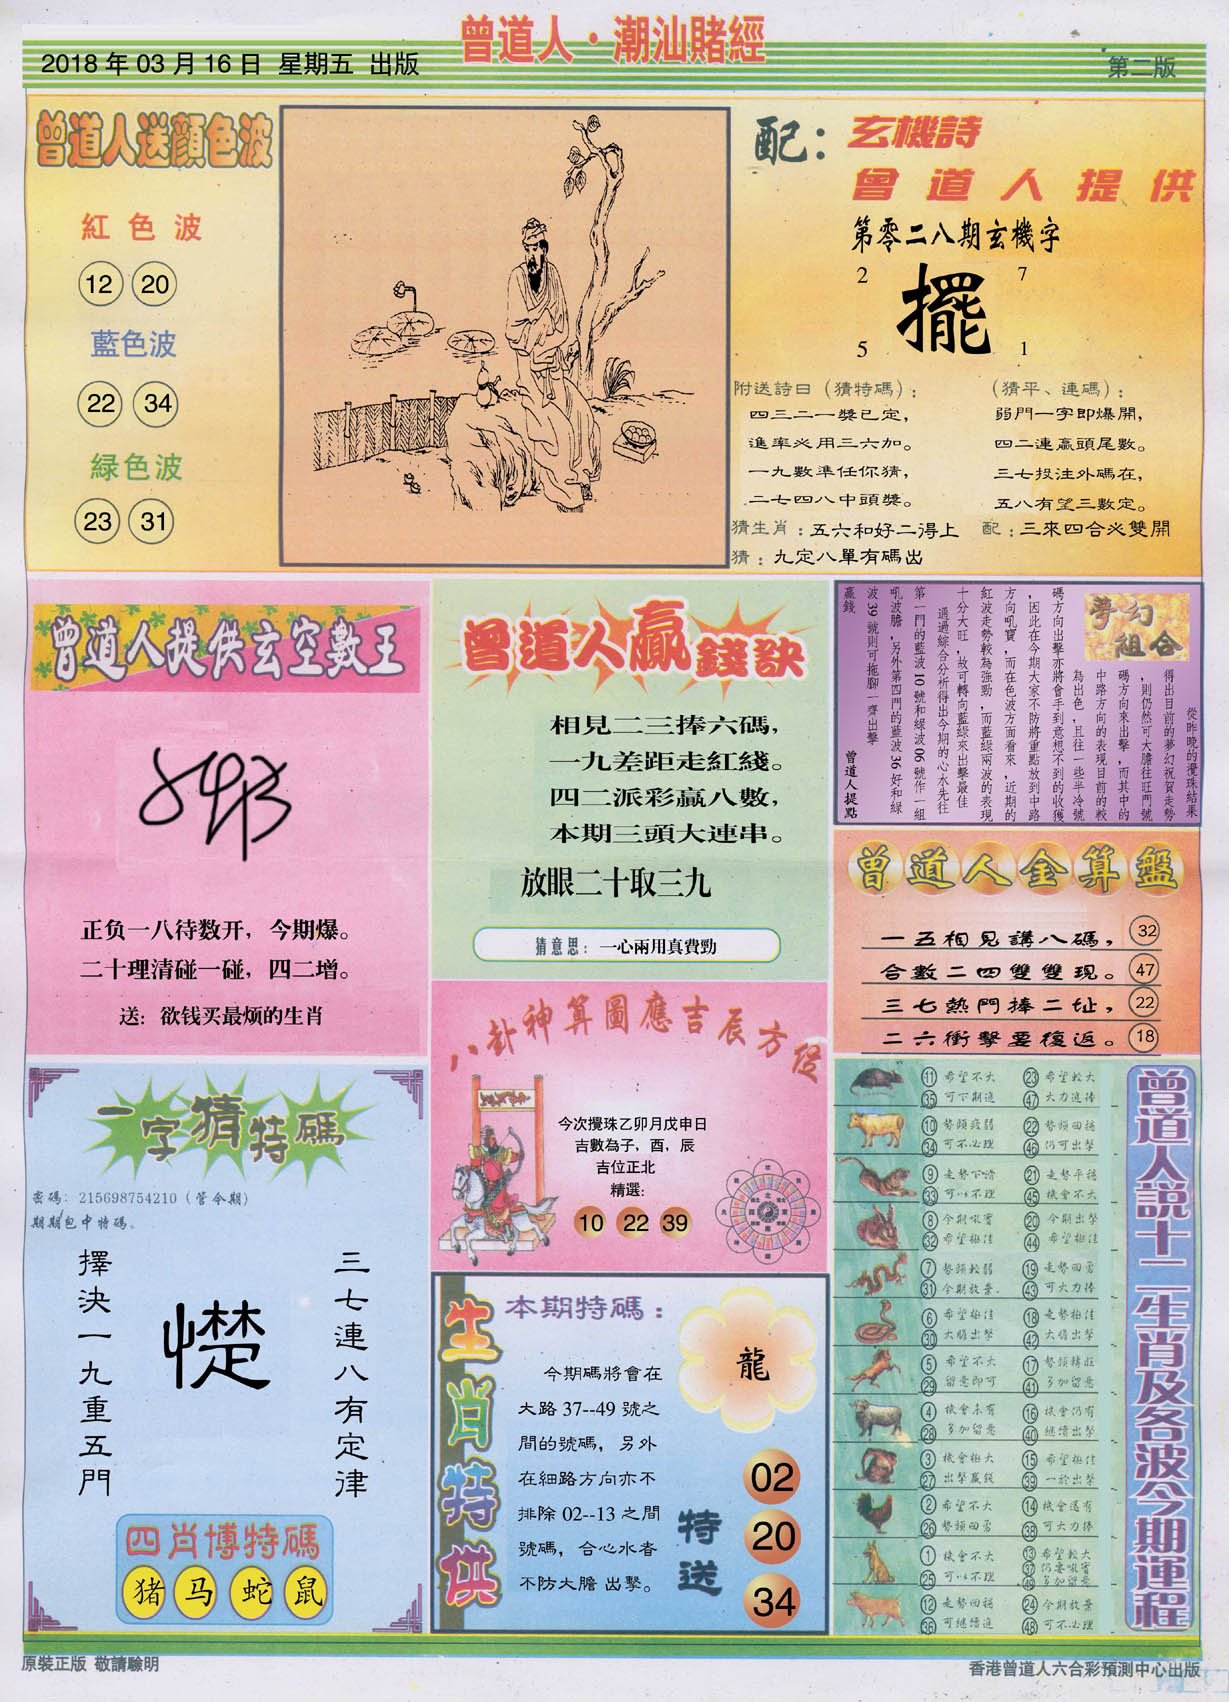 曾道人·潮汕賭經
2018年03月16日 星期五 出版
第二版
曾道人送顔色波
紅色波
12 20
藍色波
22 34
緑色波
23 31
配：
玄機詩
曾道人提供
第零二八期玄機字
2 7
擺
5 1
附送詩曰（猜特碼）：
四三二一獎已定，
進率必用三六加。
一九數準任你猜，
二七四八中頭獎。
（猜平、連碼）：
弱門一字即爆開，
四二連贏頭尾數。
三七投注外碼在，
五八有望三數定。
猜生肖：五六和好二得上
配：三來四合必雙開
猜：九定八單有碼出
曾道人提供玄空數王
正负一八待数开，今期爆。
二十理清碰一碰，四二增。
送：欲钱买最烦的生肖
曾道人贏錢訣
相見二三捧六碼，
一九差距走紅綫。
四二派彩贏八數，
本期三頭大連串。
放眼二十取三九
猜意思：一心兩用真費勁
夢幻
組合
從昨晚的攪珠結果
得出目前的夢幻祝賀走勢
，則仍然可大膽往旺門號
碼方向來出擊，而其中的
中路方向的表現目前的較
為出色，且往一些半冷號
碼方向出擊亦將會手到意想不到的收獲
，因此在今期大家不防將重點放到中路
方向吼寶，而在色波方面看來，近期的
紅波走勢較為強勁，而藍綠兩波的表現
十分大旺，故可轉向藍綠來出擊最佳
通過綜合分析得出今期的心水先往
第一門的藍波10號和綠波06號作一組
吼波膽，另外第四門的藍波36好和綠
波39號則可拖腳一齊出擊
贏錢
曾道人提點
曾道人金算盤
一五相見講八碼， 32
合數二四雙雙現。 47
三七熱門捧二址， 22
二六衝擊要復返。 18
八卦神算圖應吉辰方位
今次攪珠乙卯月戊申日
吉數為子，酉，辰
吉位正北
精選：
10 22 39
一字猜特碼
密碼：215698754210（管今期）
期期包中特碼。
三七連八有定律
憷
擇決一九重五門
四肖博特碼
猪 马 蛇 鼠
生肖特供
本期特碼：
今期碼將會在
大路37--49號之
間的號碼，另外
在細路方向亦不
排除02--13之間
號碼，合心水者
不防大膽出擊。
龍
特送
02
20
34
曾道人説十二生肖及各波今期運程
11 希望不大 23 希望較大
35 可下期追 47 大力追捧
10 勢頭疲弱 22 勢頭回穩
34 可不必理 46 仍可出擊
9 走勢下滑 21 走勢平穩
33 可以不理 45 機會不大
8 今期吼寶 20 今期出擊
32 希望極佳 44 希望極佳
7 勢頭較弱 19 走勢回勇
31 今期放棄. 43 可大力捧
6 希望極佳 18 走勢極佳
30 大膽出擊 42 大膽出擊
5 希望不大 17 勢頭轉旺
29 留意即可 41 多加留意
4 機會未有 16 機會仍有
28 多加留意 40 繼續出擊
3 機會極大 15 希望極佳
27 出擊贏錢 39 一於出擊
2 希望不大 14 機會還有
26 勢頭回勇 38 可大力捧
1 機會不大 13 希望較大
25 可以不理 37 仍要吼寶
49 多加留意
12 走勢回穩 24 今期放棄
36 可繼續追 48 可不必理
原裝正版 敬請驗明
香港曾道人六合彩預測中心出版